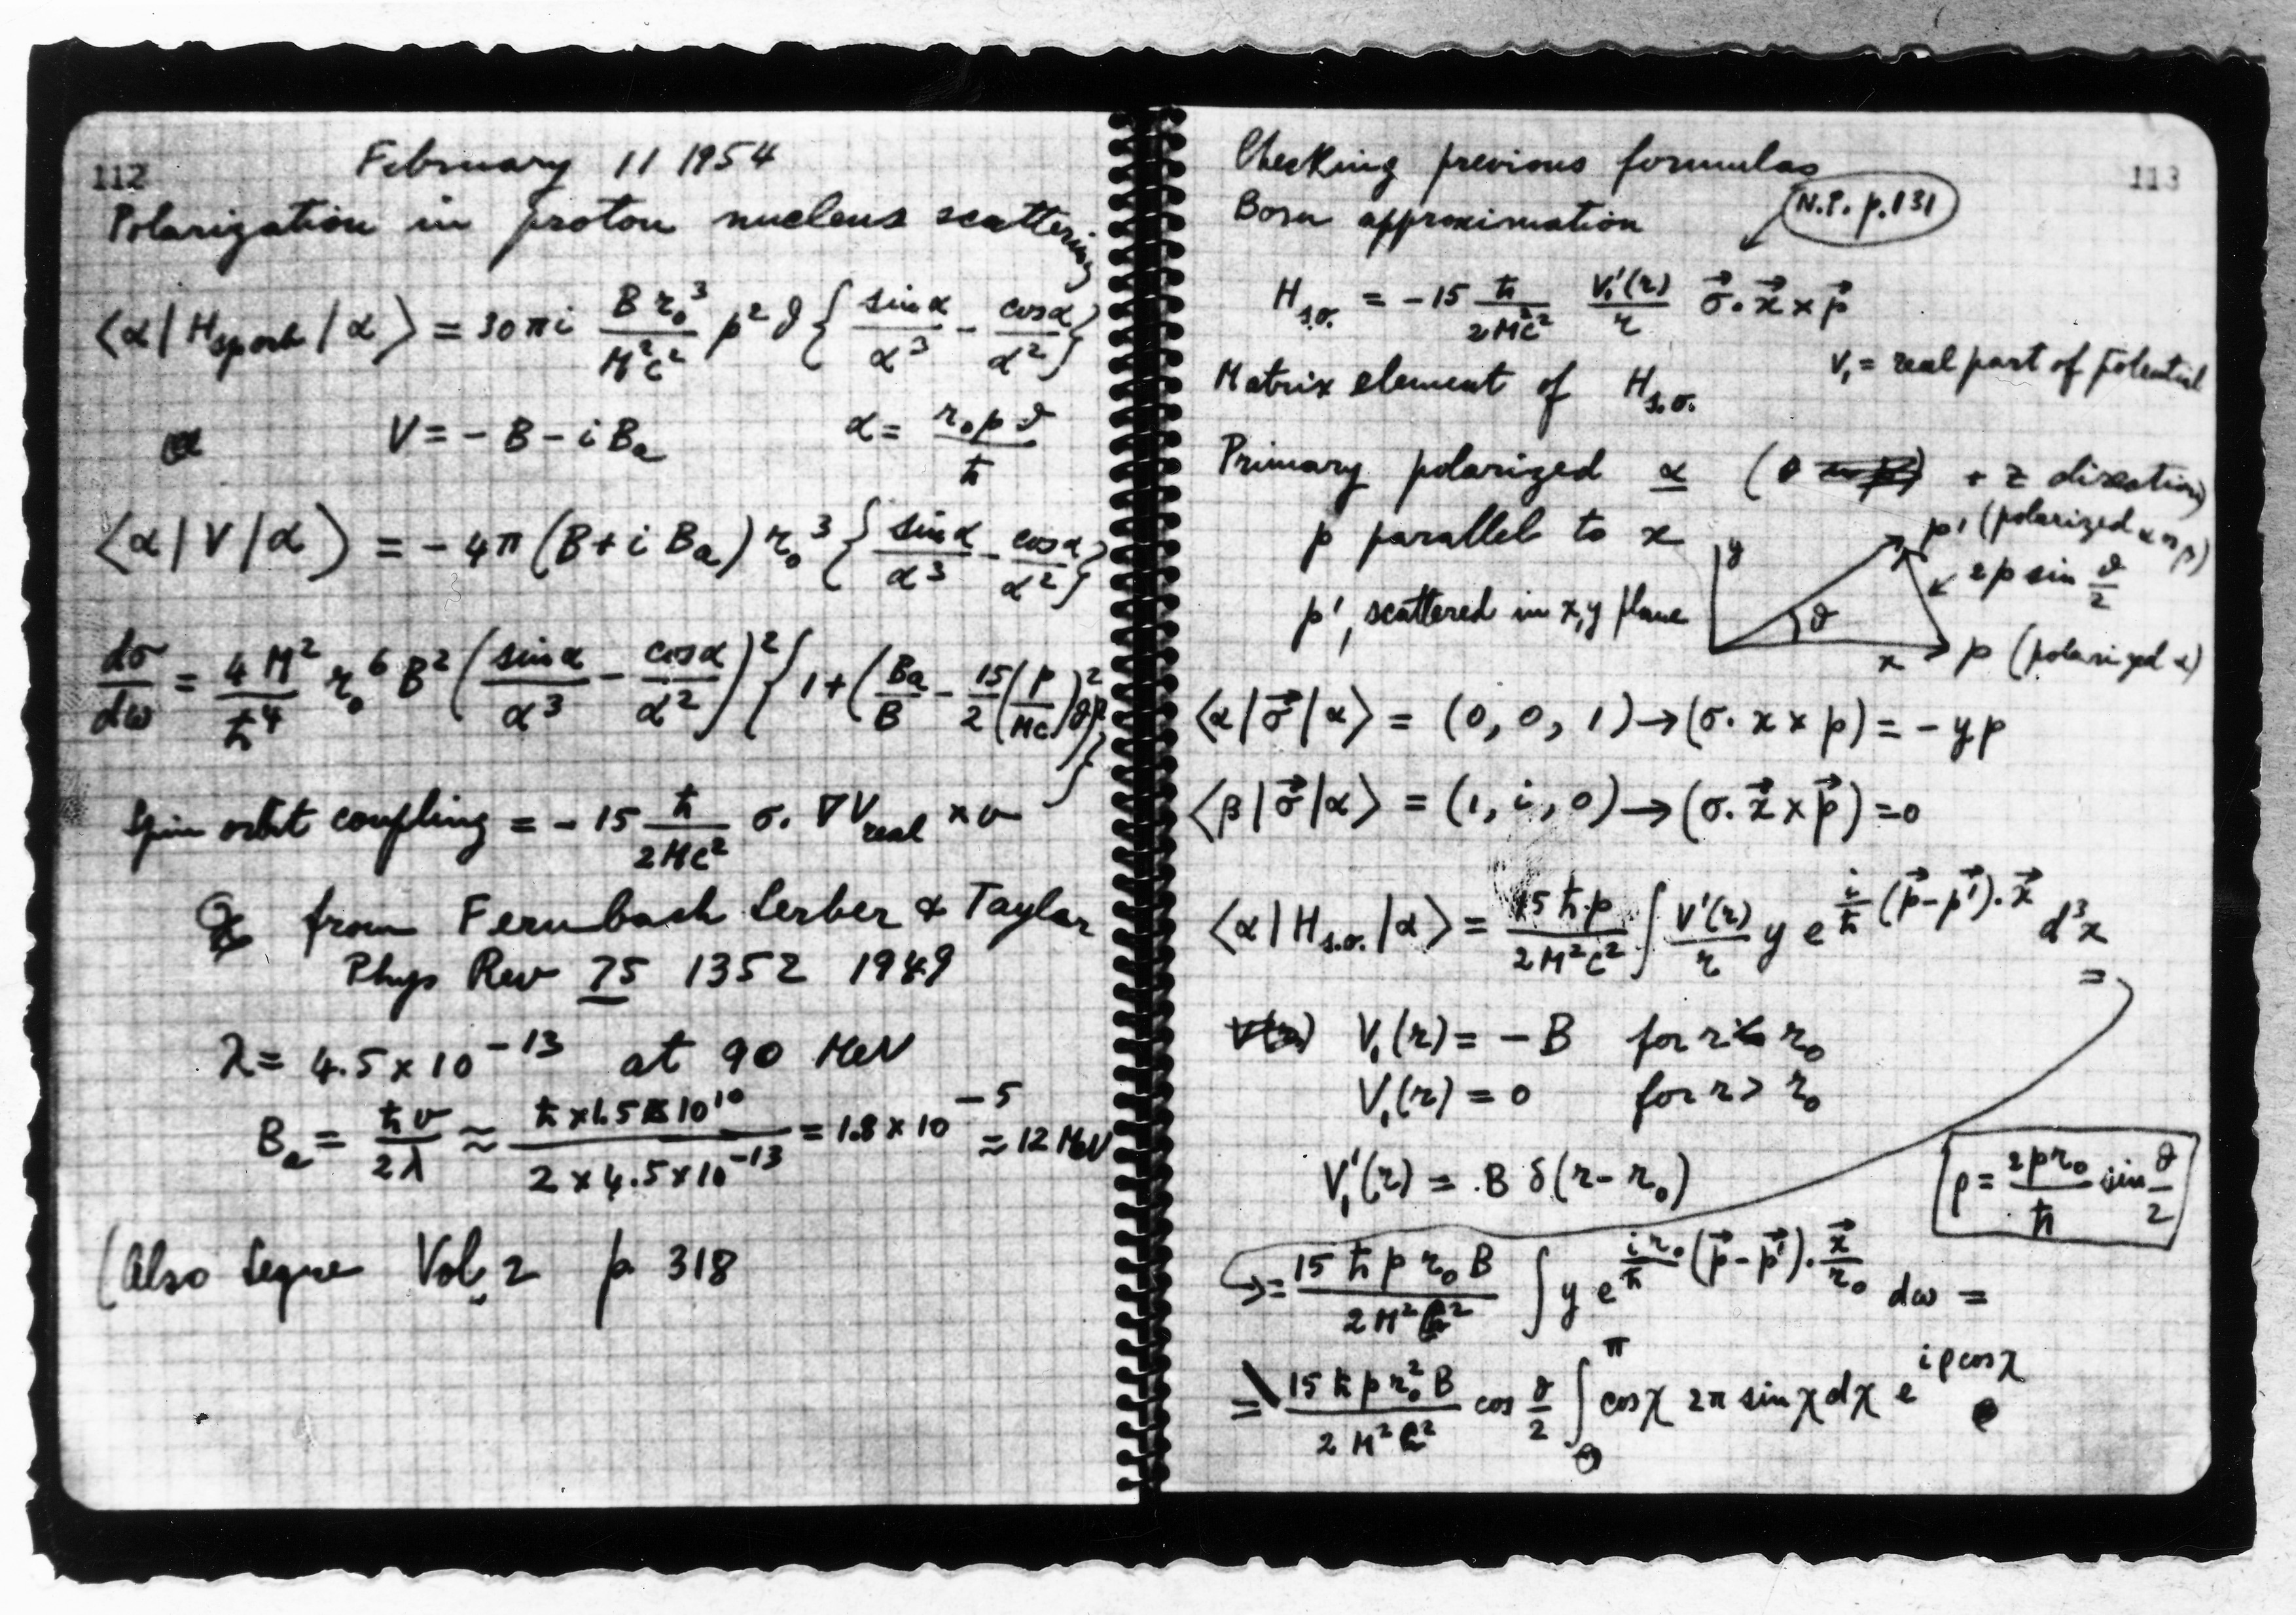 112
February 11 1954
Polarization in proton nucleus scattering
⟨α|H_{sp orb}|α⟩ = 30πi \frac{B r_0^3}{M^2c^2} p^2 ϑ { \frac{sin α}{α^3} - \frac{cos α}{α^2} }
V = - B - i B_a    α = \frac{r_0 p ϑ}{ħ}
⟨α|V|α⟩ = - 4π (B + i B_a) r_0^3 { \frac{sin α}{α^3} - \frac{cos α}{α^2} }
\frac{dσ}{dω} = \frac{4 M^2}{ħ^4} r_0^6 B^2 ( \frac{sin α}{α^3} - \frac{cos α}{α^2} )^2 { 1 + ( \frac{B_a}{B} - \frac{15}{2} ( \frac{p}{Mc} )^2 ϑ )^2 }
Spin orbit coupling = - 15 \frac{ħ}{2Mc^2} σ. ∇V_{real} × v
from Fernbach Serber & Taylor
Phys Rev 75 1352 1949
λ = 4.5 × 10^{-13} at 90 MeV
B_a = \frac{ħ v}{2λ} ≈ \frac{ħ × 1.5 × 10^{10}}{2 × 4.5 × 10^{-13}} = 1.8 × 10^{-5} ≈ 12 MeV
(Also Segre Vol. 2 p 318
113
Checking previous formulas
Born approximation
N.P. p.131
H_{s.o.} = -15 \frac{ħ}{2M^2c^2} \frac{V_1'(r)}{r} \vec{σ}. \vec{x} × \vec{p}
V_1 = real part of potential
Matrix element of H_{s.o.}
Primary polarized α ( + z direction)
p parallel to x
p', scattered in x, y plane
y
p' (polarized α or β)
2p sin \frac{ϑ}{2}
ϑ
x
p (polarized α)
⟨α|\vec{σ}|α⟩ = (0, 0, 1) → (σ. x × p) = - y p
⟨β|\vec{σ}|α⟩ = (1, i, 0) → (σ. \vec{x} × \vec{p}) = 0
⟨α|H_{s.o.}|α⟩ = \frac{15 ħ p}{2M^2c^2} ∫ \frac{V'(r)}{r} y e^{\frac{i}{ħ} (\vec{p} - \vec{p}'). \vec{x}} d^3x =
V_1(r) = - B for r < r_0
V_1(r) = 0 for r > r_0
V_1'(r) = B δ(r - r_0)
ρ = \frac{2pr_0}{ħ} sin \frac{ϑ}{2}
= \frac{15 ħ p r_0 B}{2M^2c^2} ∫ y e^{\frac{i r_0}{ħ} (\vec{p} - \vec{p}'). \frac{\vec{x}}{r_0}} dω =
= \frac{15 ħ p r_0^2 B}{2M^2c^2} cos \frac{ϑ}{2} ∫_0^π cos χ 2π sin χ dχ e^{iρ cos χ}